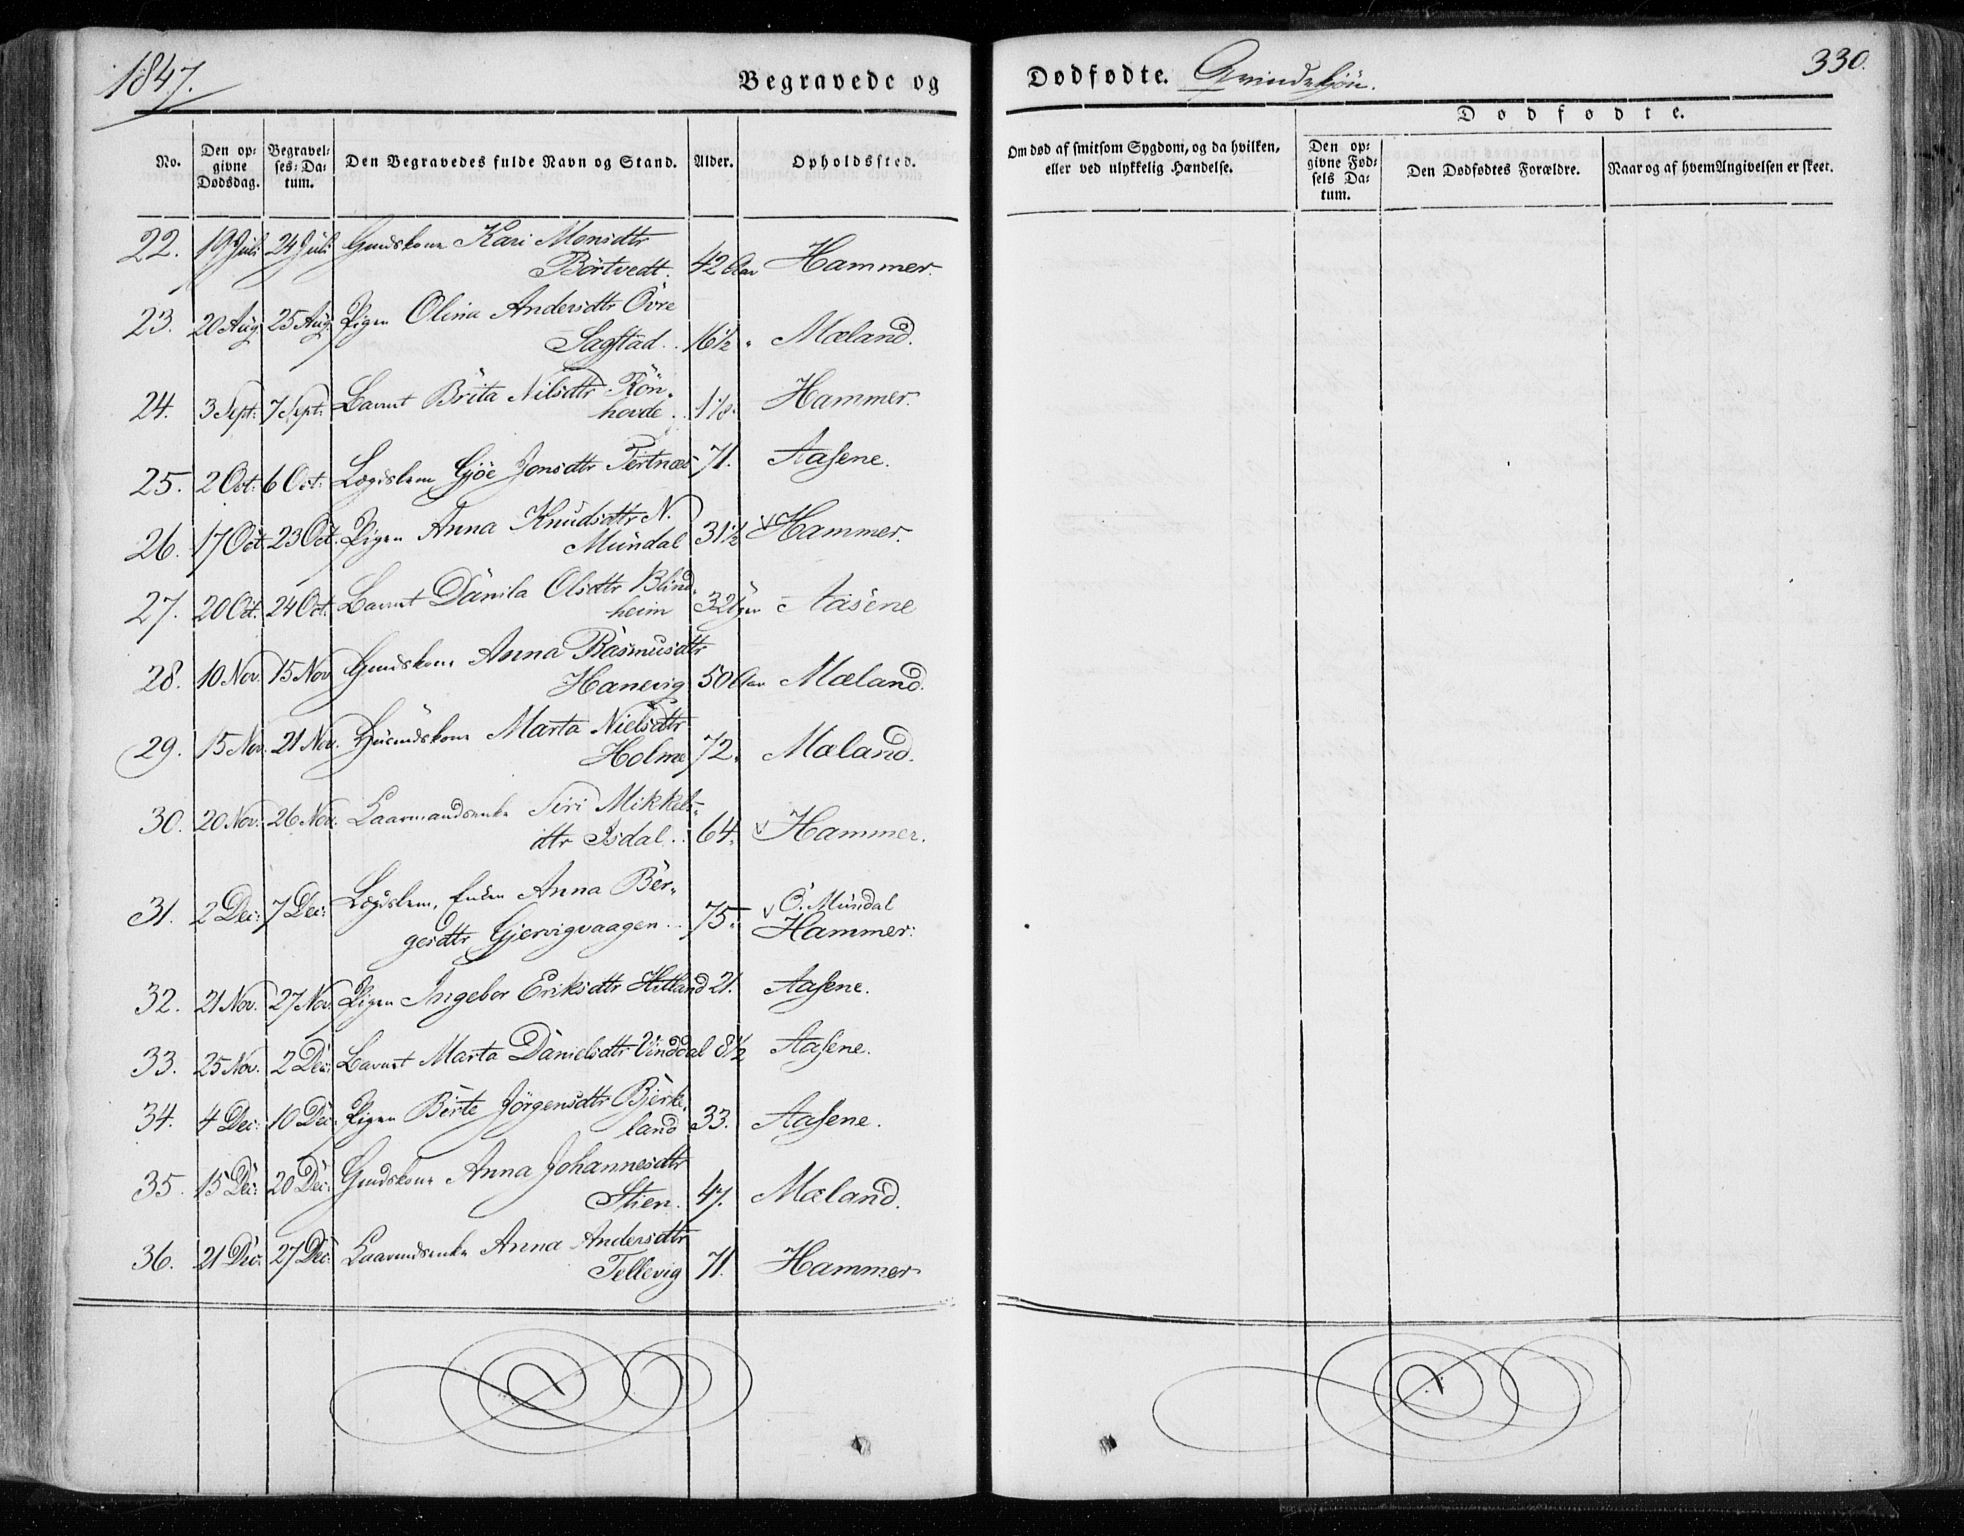 1847.
Begravede og Dødfødte. Qvindekjön.
330.
No.
Den opgivne Dødsdag.
Begravelses-Datum.
Den Begravedes fulde Navn og Stand.
Alder.
Opholdssted.
Om død af smitsom Sygdom, og da hvilken, eller ved ulykkelig Hændelse.
Dødfødte.
Den opgivne Fødsels Datum.
Den Dødfødtes Forældre.
Naar og af hvem Angivelsen er skeet.
22. 19 Juli 24 Juli Gmdskone Kari Monsdtr
Börtvedt. 42 Aar Hammer.
23. 20 Aug 25 Aug. Pigen Olina Andersdtr Övre
Sagstad. 16½ " Mæland.
24. 3 Sept: 7 Sept: Barnet Brita Nilsdtr Rön-
hovde. 1⅛ Hammer.
25. 2 Oct: 6 Oct: Lægdslem Gjöe Jonsdtr Tertnæs 71. Aasene.
26. 17 Oct. 23 Oct. Pigen Anna Knudsdtr N.
Mundal 31½ v Hammer.
27. 20 Oct. 24 Oct. Barnet Danila Olsdtr Blind-
heim 32 Uger Aasene
28. 10 Nov. 15 Nov Gmdskone Anna Rasmusdtr
Hanevig 50 Aar Mæland.
29. 15 Nov. 21 Nov. Huusmdskone Marta Nielsdtr
Holme 72. Mæland.
30. 20 Nov. 26 Nov. Kaarmandsenke Siri Mikkels-
dtr Isdal. 64. v Hammer.
31. 2 Dec: 7 Dec: Lægdslem, Enken Anna Bör-
gesdtr Gjervigvaagen 75. v Ö. Mundal
Hammer.
32. 21 Nov. 27 Nov. Pigen Ingebor Eriksdtr Hitland 21. Aasene.
33. 25 Nov. 2 Dec: Barnet Marta Danielsdtr Vinddal 8½ Aasene.
34. 4 Dec: 10 Dec. Pigen Börte Jörgensdtr Bjerke-
land 33. Aasene.
35. 15 Dec: 20 Dec: Gmdskone Anna Johannesdtr
Stien. 47. Mæland.
36. 21 Dec. 27 Dec. Kaarmdsenke Anna Andersdtr
Tellevig 71. Hammer